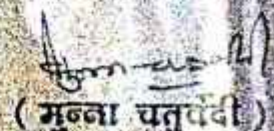 ( मुन्ना चतुर्वेदी )